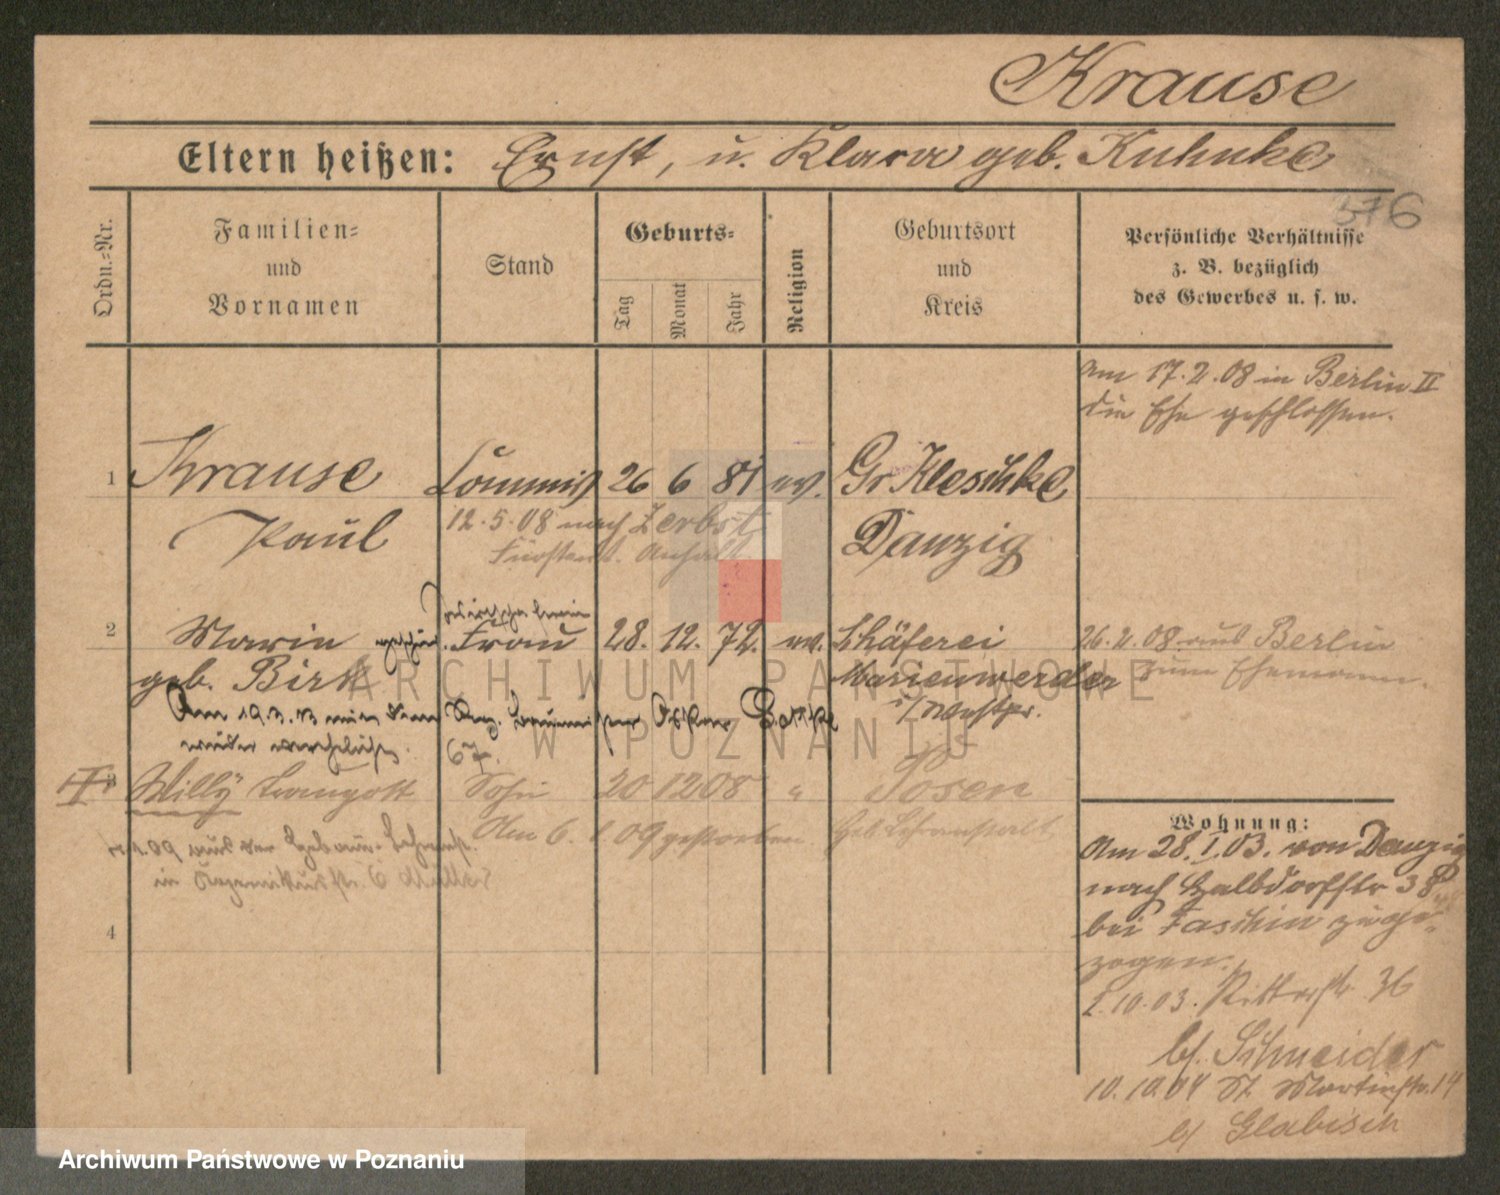 Krause
Eltern heißen: Ernst, u. Klara geb. Kuhnke
376
Ordn.-Nr.
Familien-
und
Vornamen
Stand
Geburts-
Tag
Monat
Jahr
Religion
Geburtsort
und
Kreis
Persönliche Verhältnisse
z. B. bezüglich
des Gewerbes u. s. w.
am 17.2.08 in Berlin II
die Ehe geschlossen.
1 Krause Commis 26 6 81 ev. Gr. Kleschke
Paul
12.5.08 nach Zerbst
Fürstent. Anhalt
Danzig
2 Marie Frau 28. 12. 72. ev. Schäferei
geb. Birk
Marienwerder
i/Westpr.
26.2.08 aus Berlin
zum Ehemann.
Am 19.3.13 mit dem
wieder verehelicht.
67.
3 Willy Traugott Sohn 20 12 08 " Posen
Am 6.1.09 gestorben
4
Wohnung:
Am 28.I.03. von Danzig
nach Halbdorfstr 38
bei Faschin zuge-
zogen.
2.10.03. Ritterstr. 36
bf. Schneider
10.10.04 St. Martinstr. 14
bf Glabisch
ARCHIWUM PAŃSTWOWE
W POZNANIU
Archiwum Państwowe w Poznaniu